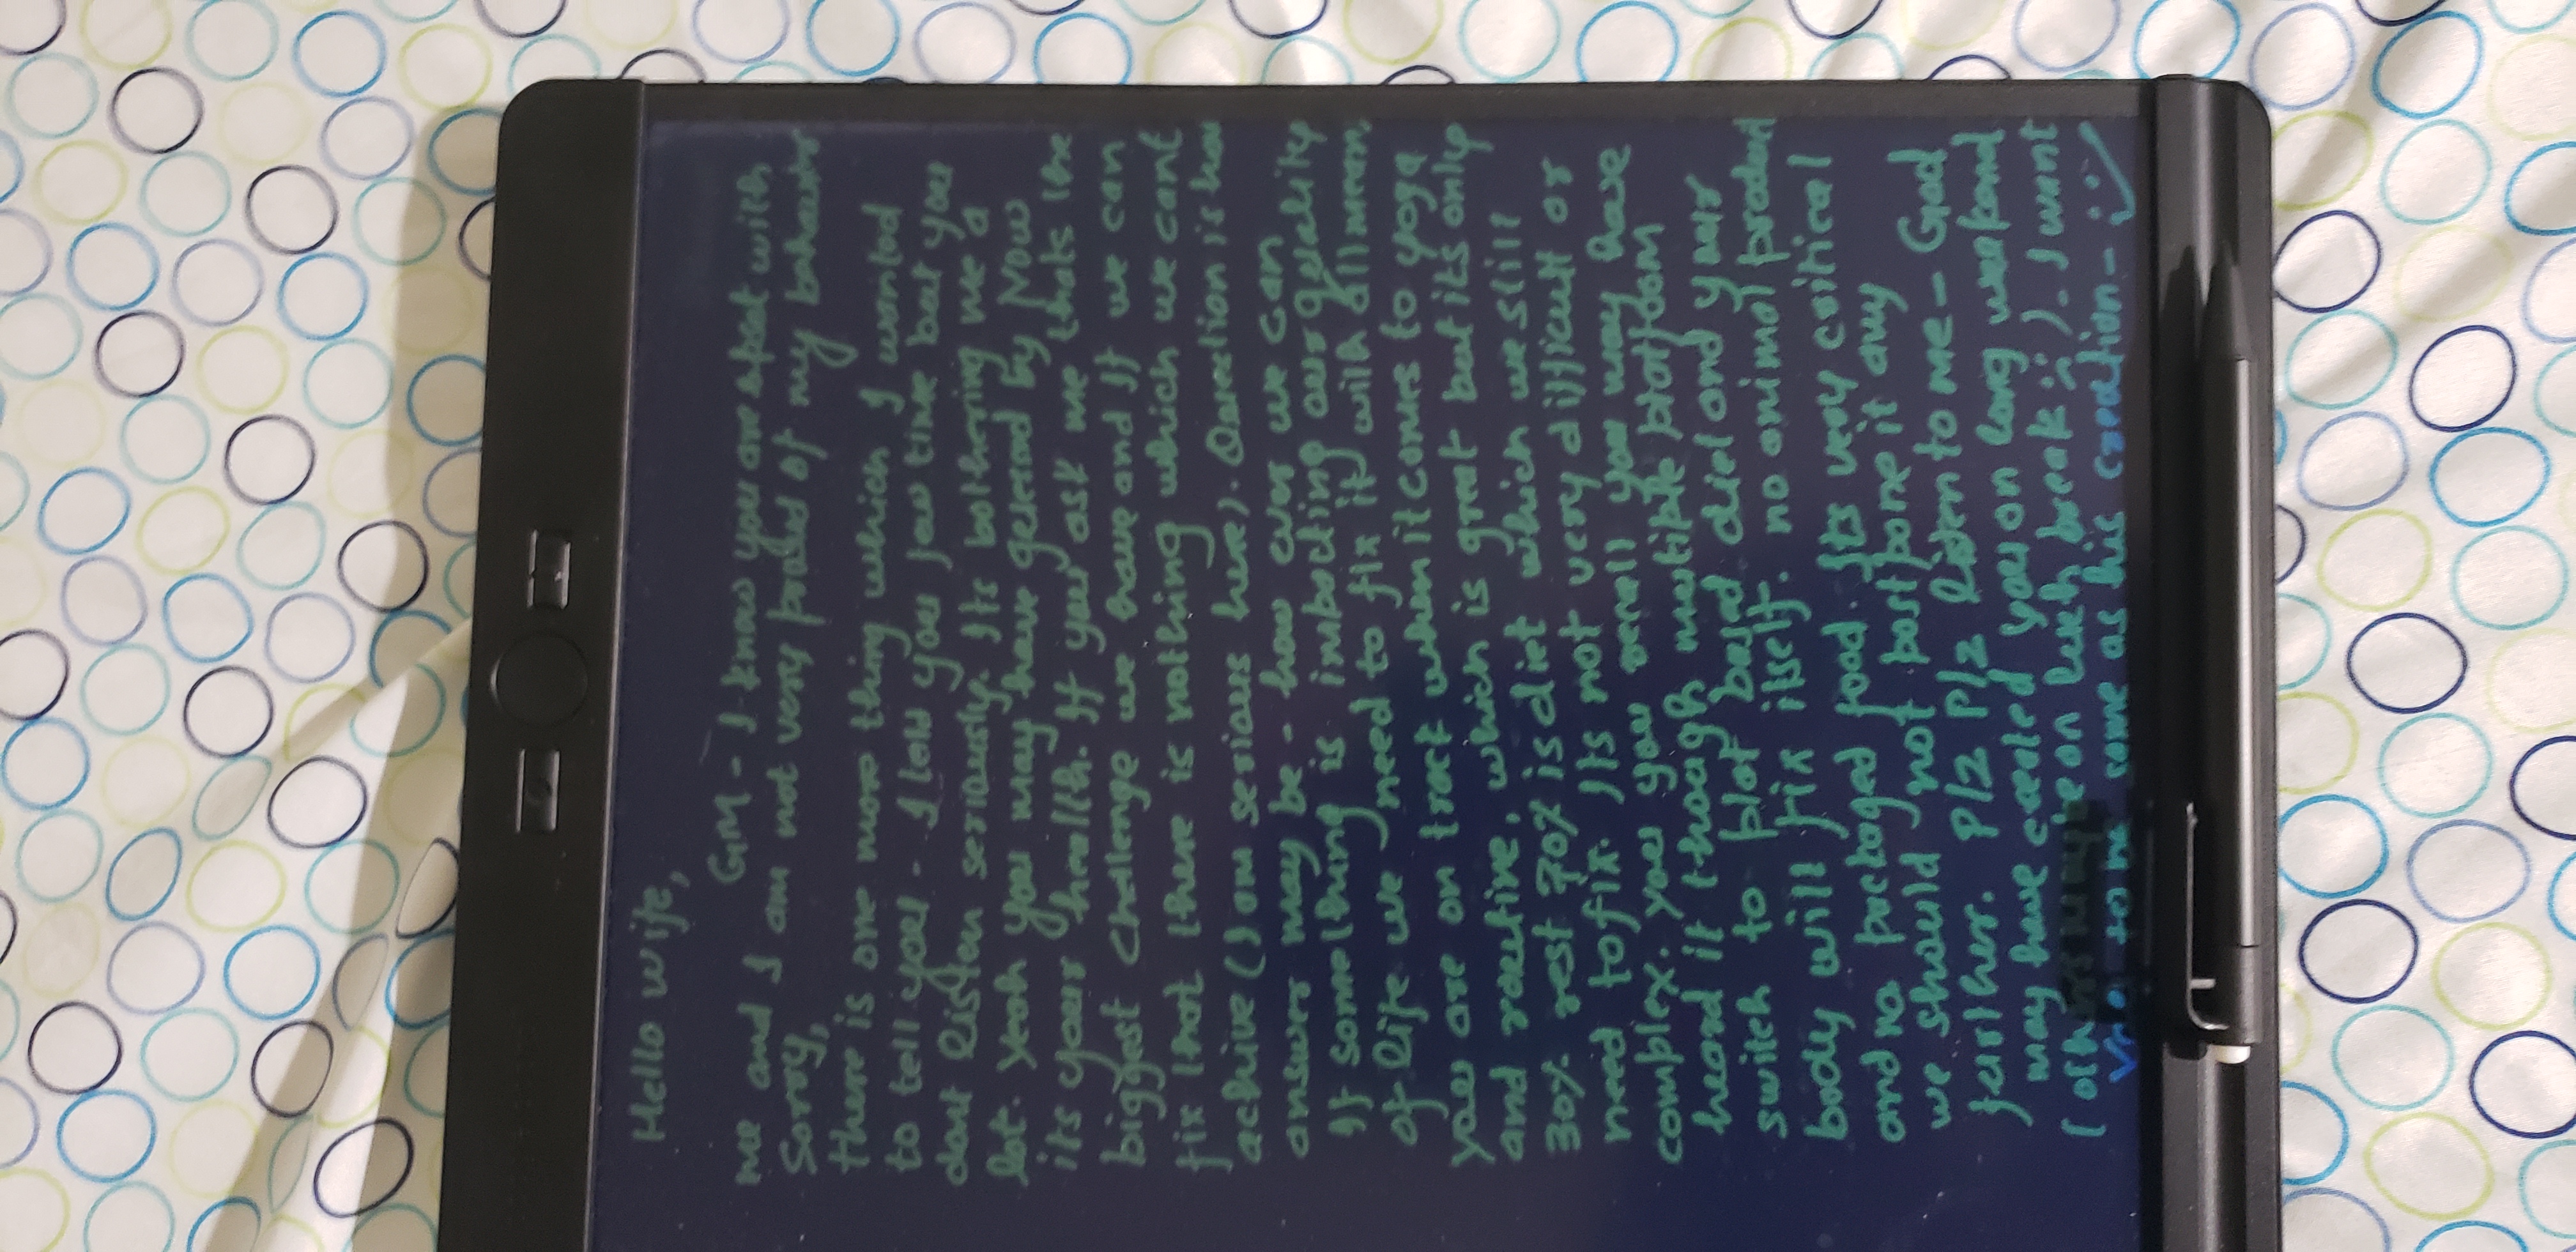 Hello wife,
GM - I know you are upset with
me and I am not very proud of my behavior
Sorry,
there is one more thing which I wanted
to tell you - I told you few time but you
dont listen seriously. Its bothering me a
lot. Yeah you may have gussed by Now
its your health. If you ask me thats the
biggest challenge we have and If we can
fix that there is nothing which we cant
achive (I am serious here). Question is how
answer may be - how ever we can
If something is impacting our quality
of life we need to fix it with all mean.
you are on track when it comes to yoga
and routine, which is great but its only
30% rest 70% is diet which we still
need to fix. Its not very difficult or
complex. you you recall you may have
heard it though multiple platform
switch to plat based diet and your
body will fix itself. no animal product
and no packaged food. Its very critical
we should not postpone it any
further. Plz Plz listen to me - God
may have created you on long weekend
( be on break :) ). I want
to be same as his creation - :)